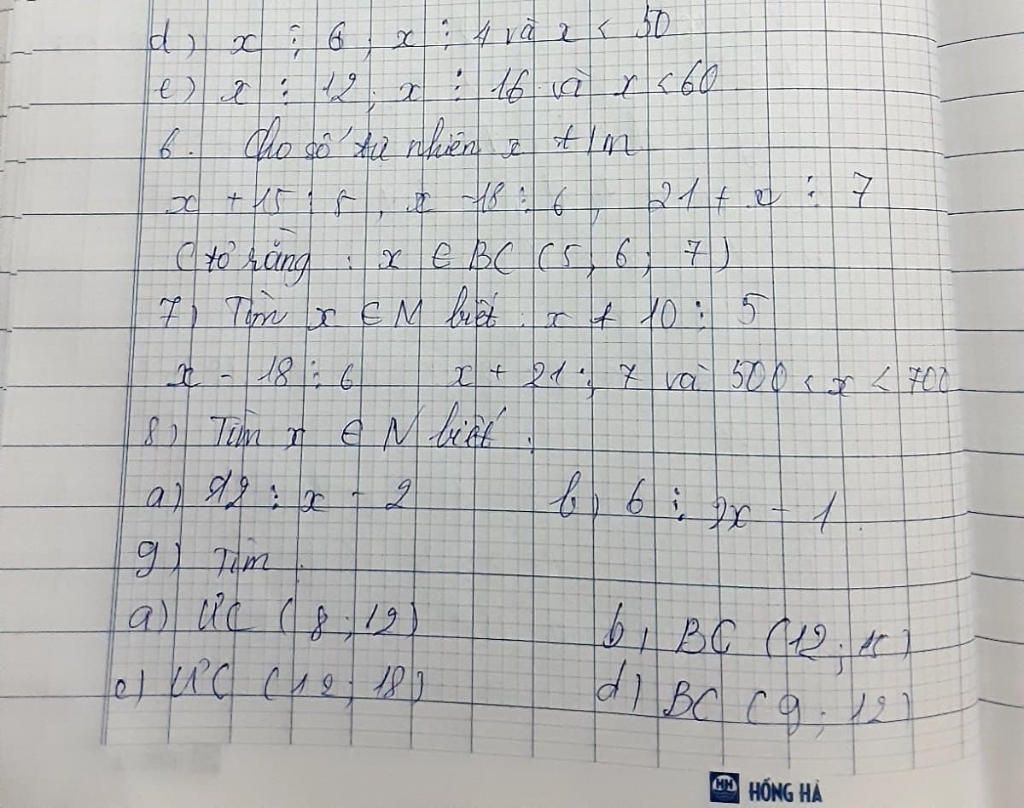 d) x ⋮ 6, x ⋮ 4 và x < 50
e) x ⋮ 12, x ⋮ 16 và x < 60
6. Cho số tự nhiên x t/m
x + 15 ⋮ 5, x - 18 ⋮ 6, 21 + x ⋮ 7
C tỏ rằng : x ∈ BC (5, 6, 7)
7) Tìm x ∈ N biết : x + 10 ⋮ 5
x - 18 ⋮ 6 x + 21 ⋮ 7 và 500 < x < 700
8) Tìm x ∈ N biết :
a) 12 ⋮ x - 2 b) 6 ⋮ 2x - 1
9) Tìm
a) ƯC (8 ; 12) b) BC (12 ; 15)
c) ƯC (12 ; 18) d) BC (9 ; 12)
HH HỒNG HÀ